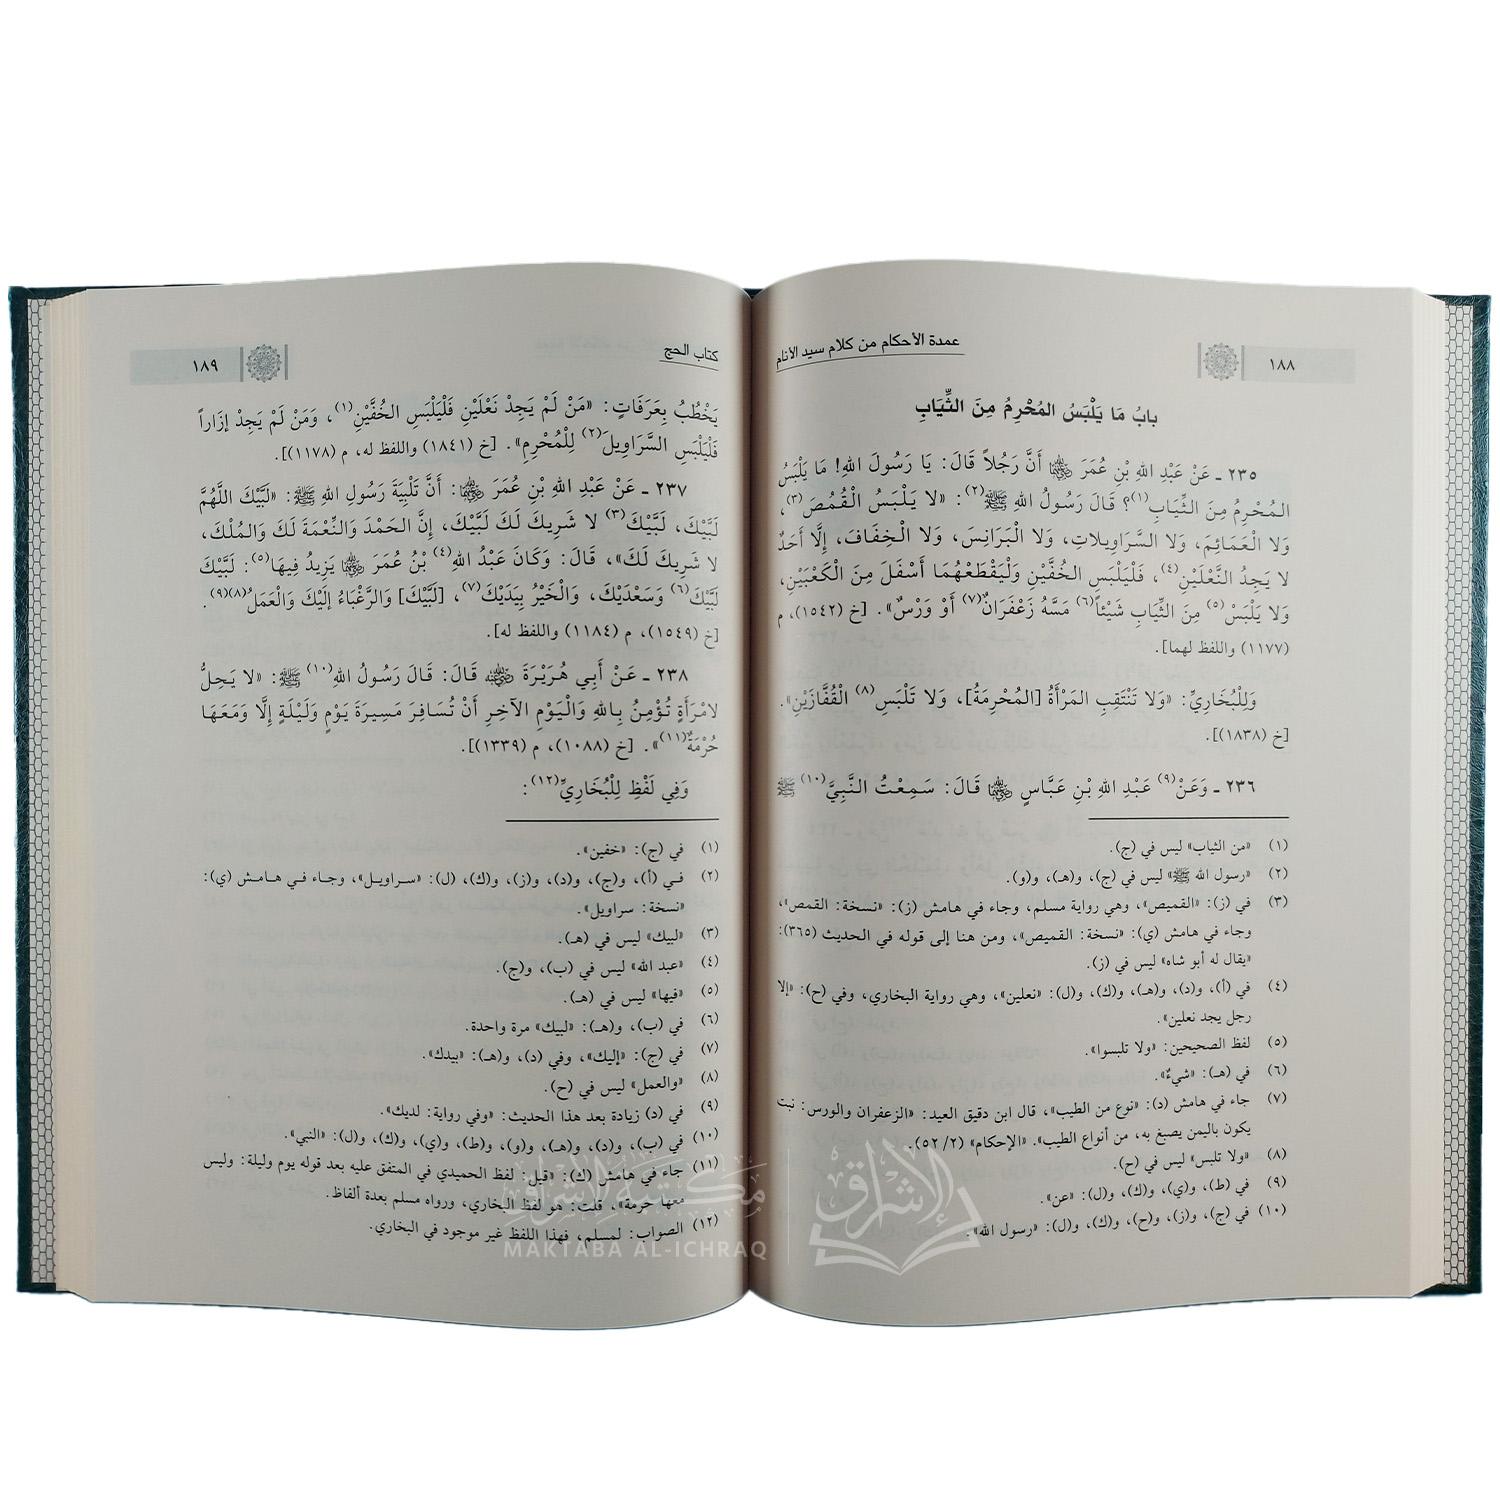 ١٨٨
عمدة الأحكام من كلام سيد الأنام
بابُ مَا يَلْبَسُ المُحْرِمُ مِنَ الثِّيَابِ
٢٣٥ ـ عَنْ عَبْدِ اللهِ بْنِ عُمَرَ ﵄ أَنَّ رَجُلاً قَالَ: يَا رَسُولَ اللهِ! مَا يَلْبَسُ
المُحْرِمُ مِنَ الثِّيَابِ(١)؟ قَالَ رَسُولُ اللهِ ﷺ(٢): «لا يَلْبَسُ الْقُمُصَ(٣)،
وَلا الْعَمَائِمَ، وَلا السَّرَاوِيلاتِ، وَلا الْبَرَانِسَ، وَلا الْخِفَافَ، إِلَّا أَحَدٌ
لا يَجِدُ النَّعْلَيْنِ(٤)، فَلْيَلْبَسِ الخُفَّيْنِ وَلْيَقْطَعْهُمَا أَسْفَلَ مِنَ الْكَعْبَيْنِ،
وَلا يَلْبَسْ(٥) مِنَ الثِّيَابِ شَيْئاً(٦) مَسَّهُ زَعْفَرَانٌ(٧) أَوْ وَرْسٌ». [خ (١٥٤٢)، م
(١١٧٧) واللفظ لهما].
وَلِلْبُخَارِيِّ: «وَلا تَنْتَقِبِ المَرْأَةُ [المُحْرِمَةُ]، وَلا تَلْبَسِ(٨) الْقُفَّازَيْنِ».
[خ (١٨٣٨)].
٢٣٦ ـ وَعَنْ(٩) عَبْدِ اللهِ بْنِ عَبَّاسٍ ﵄ قَالَ: سَمِعْتُ النَّبِيَّ(١٠) ﷺ
(١) «من الثياب» ليس في (ج).
(٢) «رسول الله ﷺ» ليس في (ج)، و(هـ)، و(و).
(٣) في (ز): «القميص»، وهي رواية مسلم، وجاء في هامش (ز): «نسخة: القمص»،
وجاء في هامش (ي): «نسخة: القميص»، ومن هنا إلى قوله في الحديث (٣٦٥):
«يقال له أبو شاه» ليس في (ز).
(٤) في (أ)، و(د)، و(هـ)، و(ك)، و(ل): «نعلين»، وهي رواية البخاري، وفي (ح): «إلا
رجل يجد نعلين».
(٥) لفظ الصحيحين: «ولا تلبسوا».
(٦) في (هـ): «شيءٌ».
(٧) جاء في هامش (د): «نوع من الطيب»، قال ابن دقيق العيد: «الزعفران والورس: نبت
يكون باليمن يصبغ به، من أنواع الطيب». «الإحكام» (٢/ ٥٢).
(٨) «ولا تلبس» ليس في (ح).
(٩) في (ط)، و(ي)، و(ك)، و(ل): «عن».
(١٠) في (ج)، و(ز)، و(ح)، و(ك)، و(ل): «رسول الله».
كتاب الحج
١٨٩
يَخْطُبُ بِعَرَفَاتٍ: «مَنْ لَمْ يَجِدْ نَعْلَيْنِ فَلْيَلْبَسِ الخُفَّيْنِ(١)، وَمَنْ لَمْ يَجِدْ إزَاراً
فَلْيَلْبَسِ السَّرَاوِيلَ(٢) لِلْمُحْرِمِ». [خ (١٨٤١) واللفظ له، م (١١٧٨)].
٢٣٧ ـ عَنْ عَبْدِ اللهِ بْنِ عُمَرَ ﵄: أَنَّ تَلْبِيَةَ رَسُولِ اللهِ ﷺ: «لَبَّيْكَ اللَّهُمَّ
لَبَّيْكَ، لَبَّيْكَ(٣) لا شَرِيكَ لَكَ لَبَّيْكَ، إِنَّ الحَمْدَ وَالنِّعْمَةَ لَكَ وَالمُلْكَ،
لا شَرِيكَ لَكَ»، قَالَ: وَكَانَ عَبْدُ اللهِ(٤) بْنُ عُمَرَ ﵄ يَزِيدُ فِيهَا(٥): لَبَّيْكَ
لَبَّيْكَ(٦) وَسَعْدَيْكَ، وَالْخَيْرُ بِيَدَيْكَ(٧)، [لَبَّيْكَ] وَالرَّغْبَاءُ إِلَيْكَ وَالْعَمَلُ(٨)(٩).
[خ (١٥٤٩)، م (١١٨٤) واللفظ له].
٢٣٨ ـ عَنْ أَبِي هُرَيْرَةَ ﵁ قَالَ: قَالَ رَسُولُ اللهِ(١٠) ﷺ: «لا يَحِلُّ
لامْرَأَةٍ تُؤْمِنُ بِاللهِ وَالْيَوْمِ الآخِرِ أَنْ تُسَافِرَ مَسِيرَةَ يَوْمٍ وَلَيْلَةٍ إِلَّا وَمَعَهَا
حُرْمَةٌ(١١)». [خ (١٠٨٨)، م (١٣٣٩)].
وَفِي لَفْظِ لِلْبُخَارِيِّ(١٢):
(١) في (ج): «خفين».
(٢) في (أ)، و(ج)، و(د)، و(ز)، و(ك)، (ل): «سراويل»، وجاء في هامش (ي):
«نسخة: سراويل».
(٣) «لبيك» ليس في (هـ).
(٤) «عبد الله» ليس في (ب)، و(ج).
(٥) «فيها» ليس في (هـ).
(٦) في (ب)، و(هـ): «لبيك» مرة واحدة.
(٧) في (ج): «إليك»، وفي (د)، و(هـ): «بيدك».
(٨) «والعمل» ليس في (ح).
(٩) في (د) زيادة بعد هذا الحديث: «وفي رواية: لديك».
(١٠) في (ب)، و(د)، و(هـ)، و(و)، و(ط)، و(ي)، و(ك)، و(ل): «النبي».
(١١) جاء في هامش (ك): «قيل: لفظ الحميدي في المتفق عليه بعد قوله يوم وليلة: وليس
معها حرمة»، قلت: هو لفظ البخاري، ورواه مسلم بعدة ألفاظ.
(١٢) الصواب: لمسلم، فهذا اللفظ غير موجود في البخاري.
مكتبة الإشراق
MAKTABA AL-ICHRAQ
الإشراق